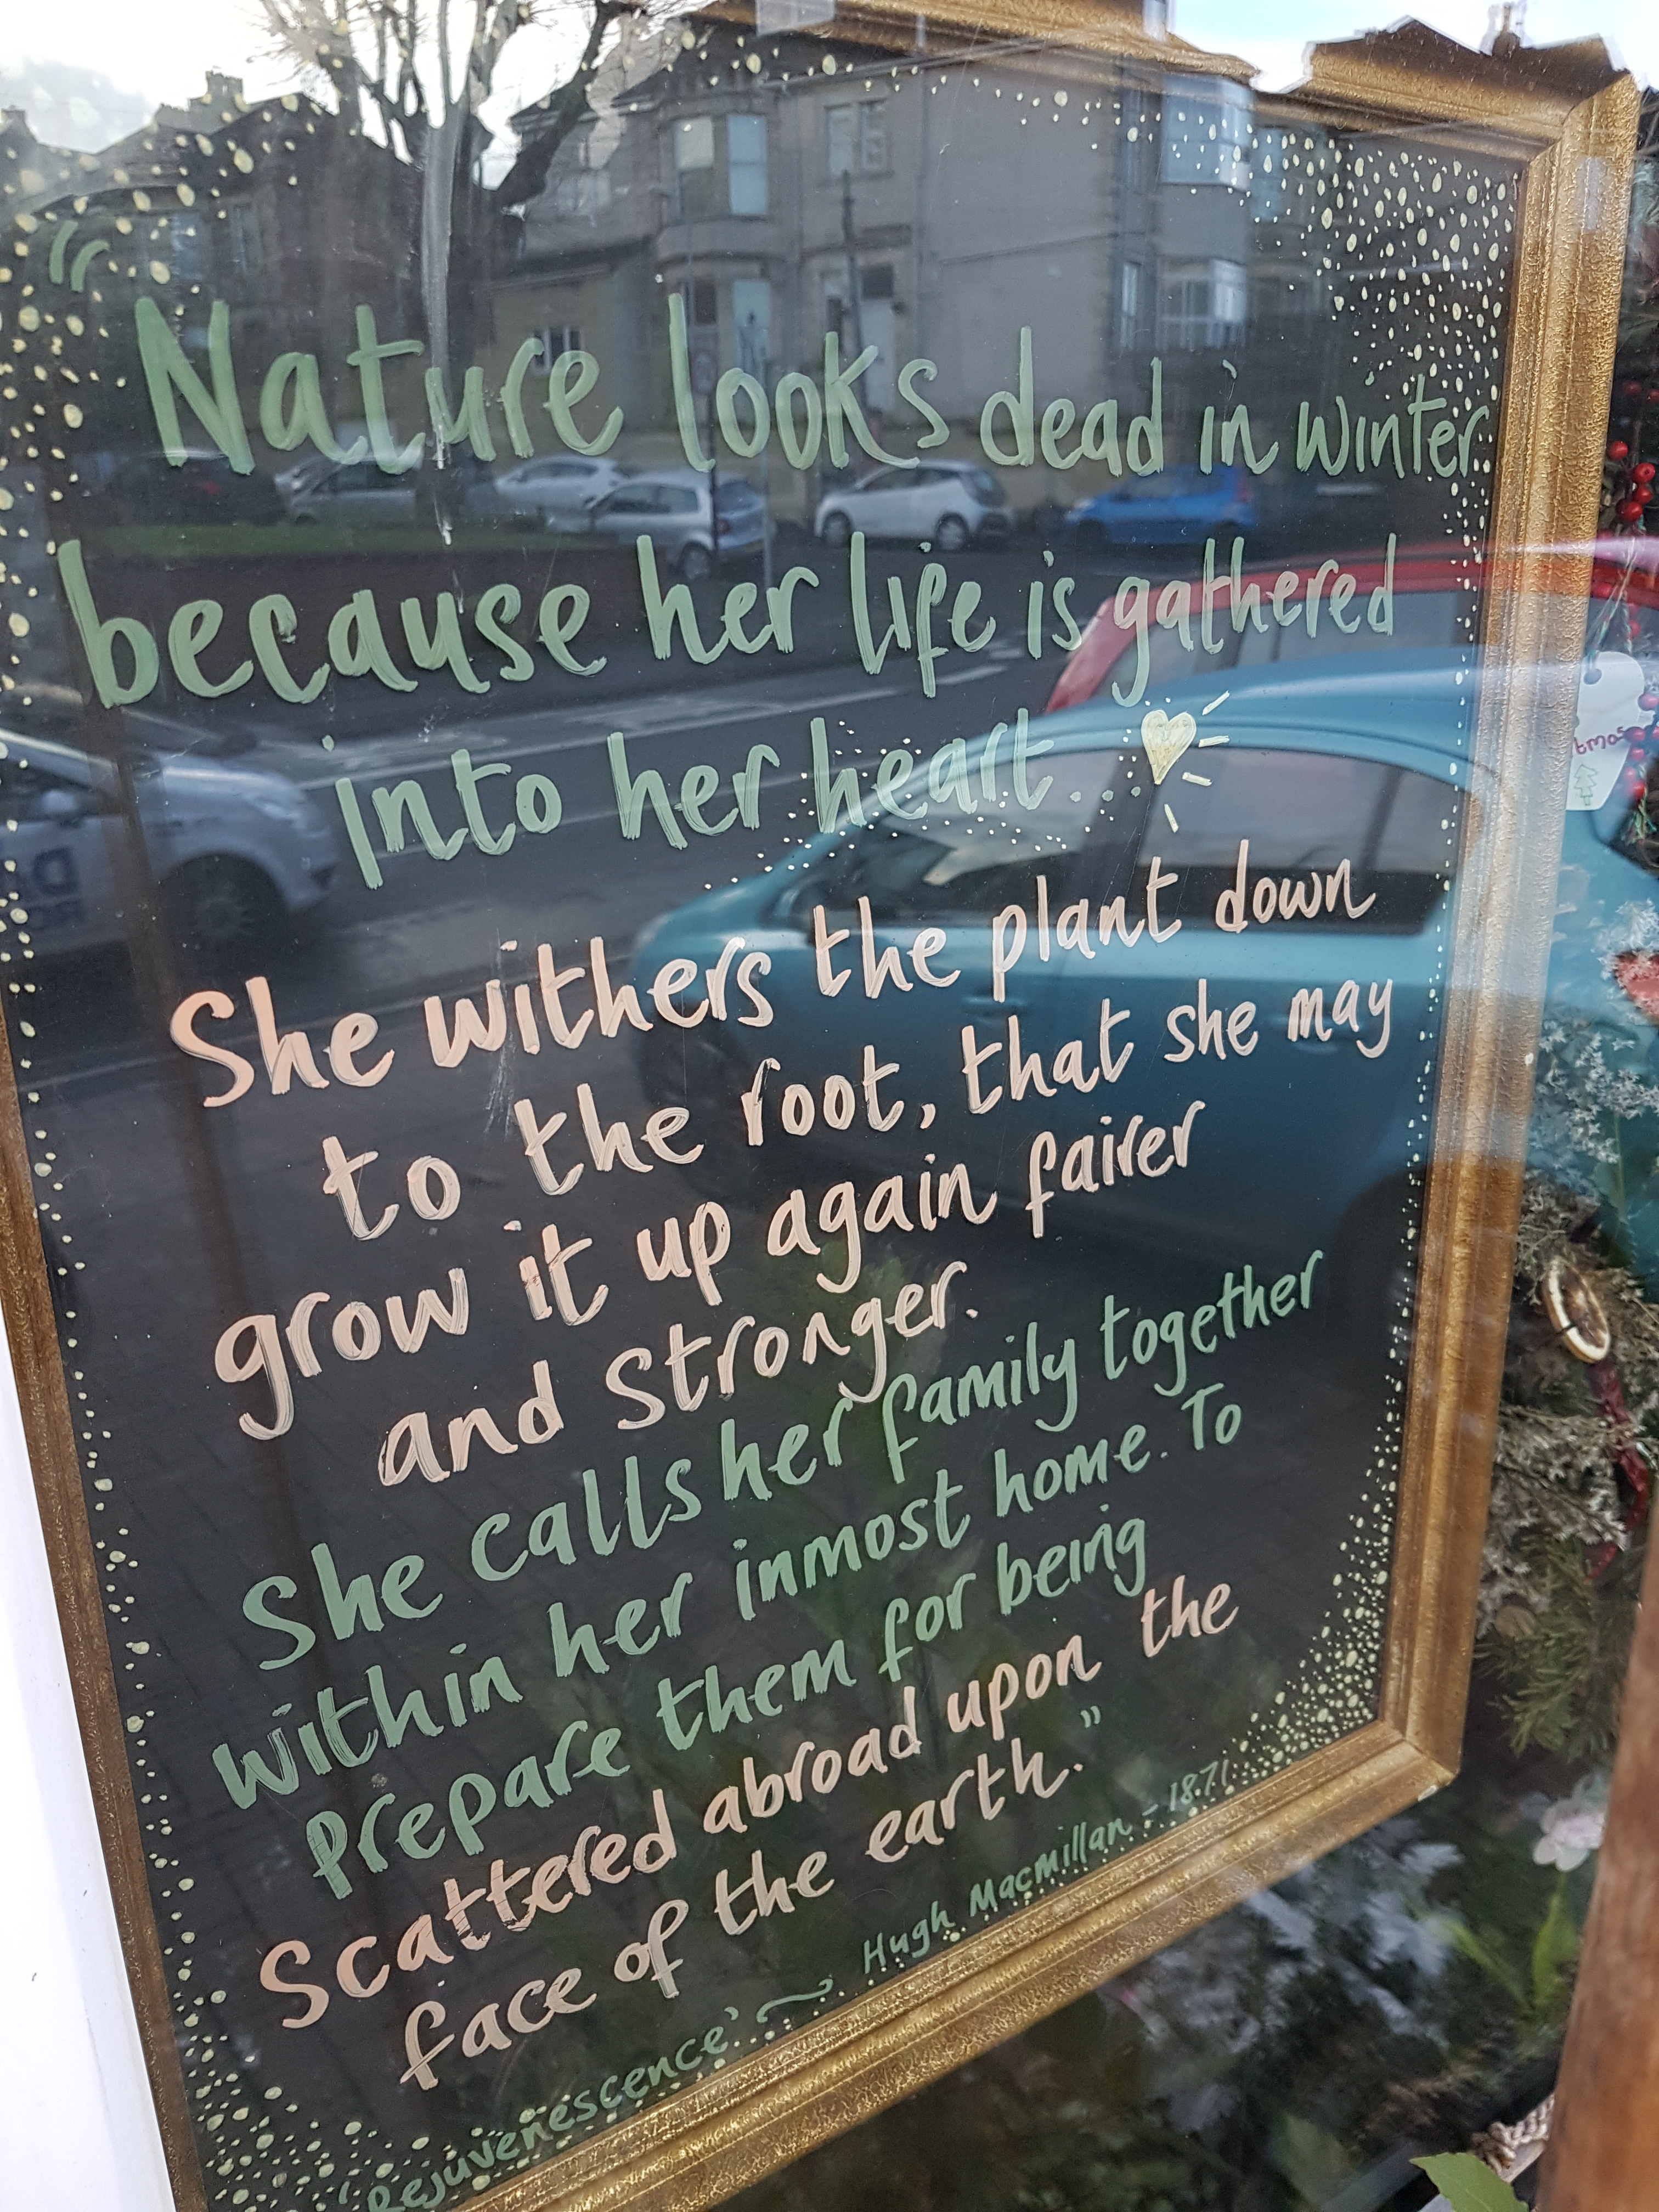 “Nature looks dead in winter
because her life is gathered
into her heart...
She withers the plant down
to the root, that she may
grow it up again fairer
and stronger.
She calls her family together
within her inmost home. To
prepare them for being
Scattered abroad upon the
face of the earth.”
‘Rejuvenescence’ ~ Hugh Macmillan - 1871
tmas